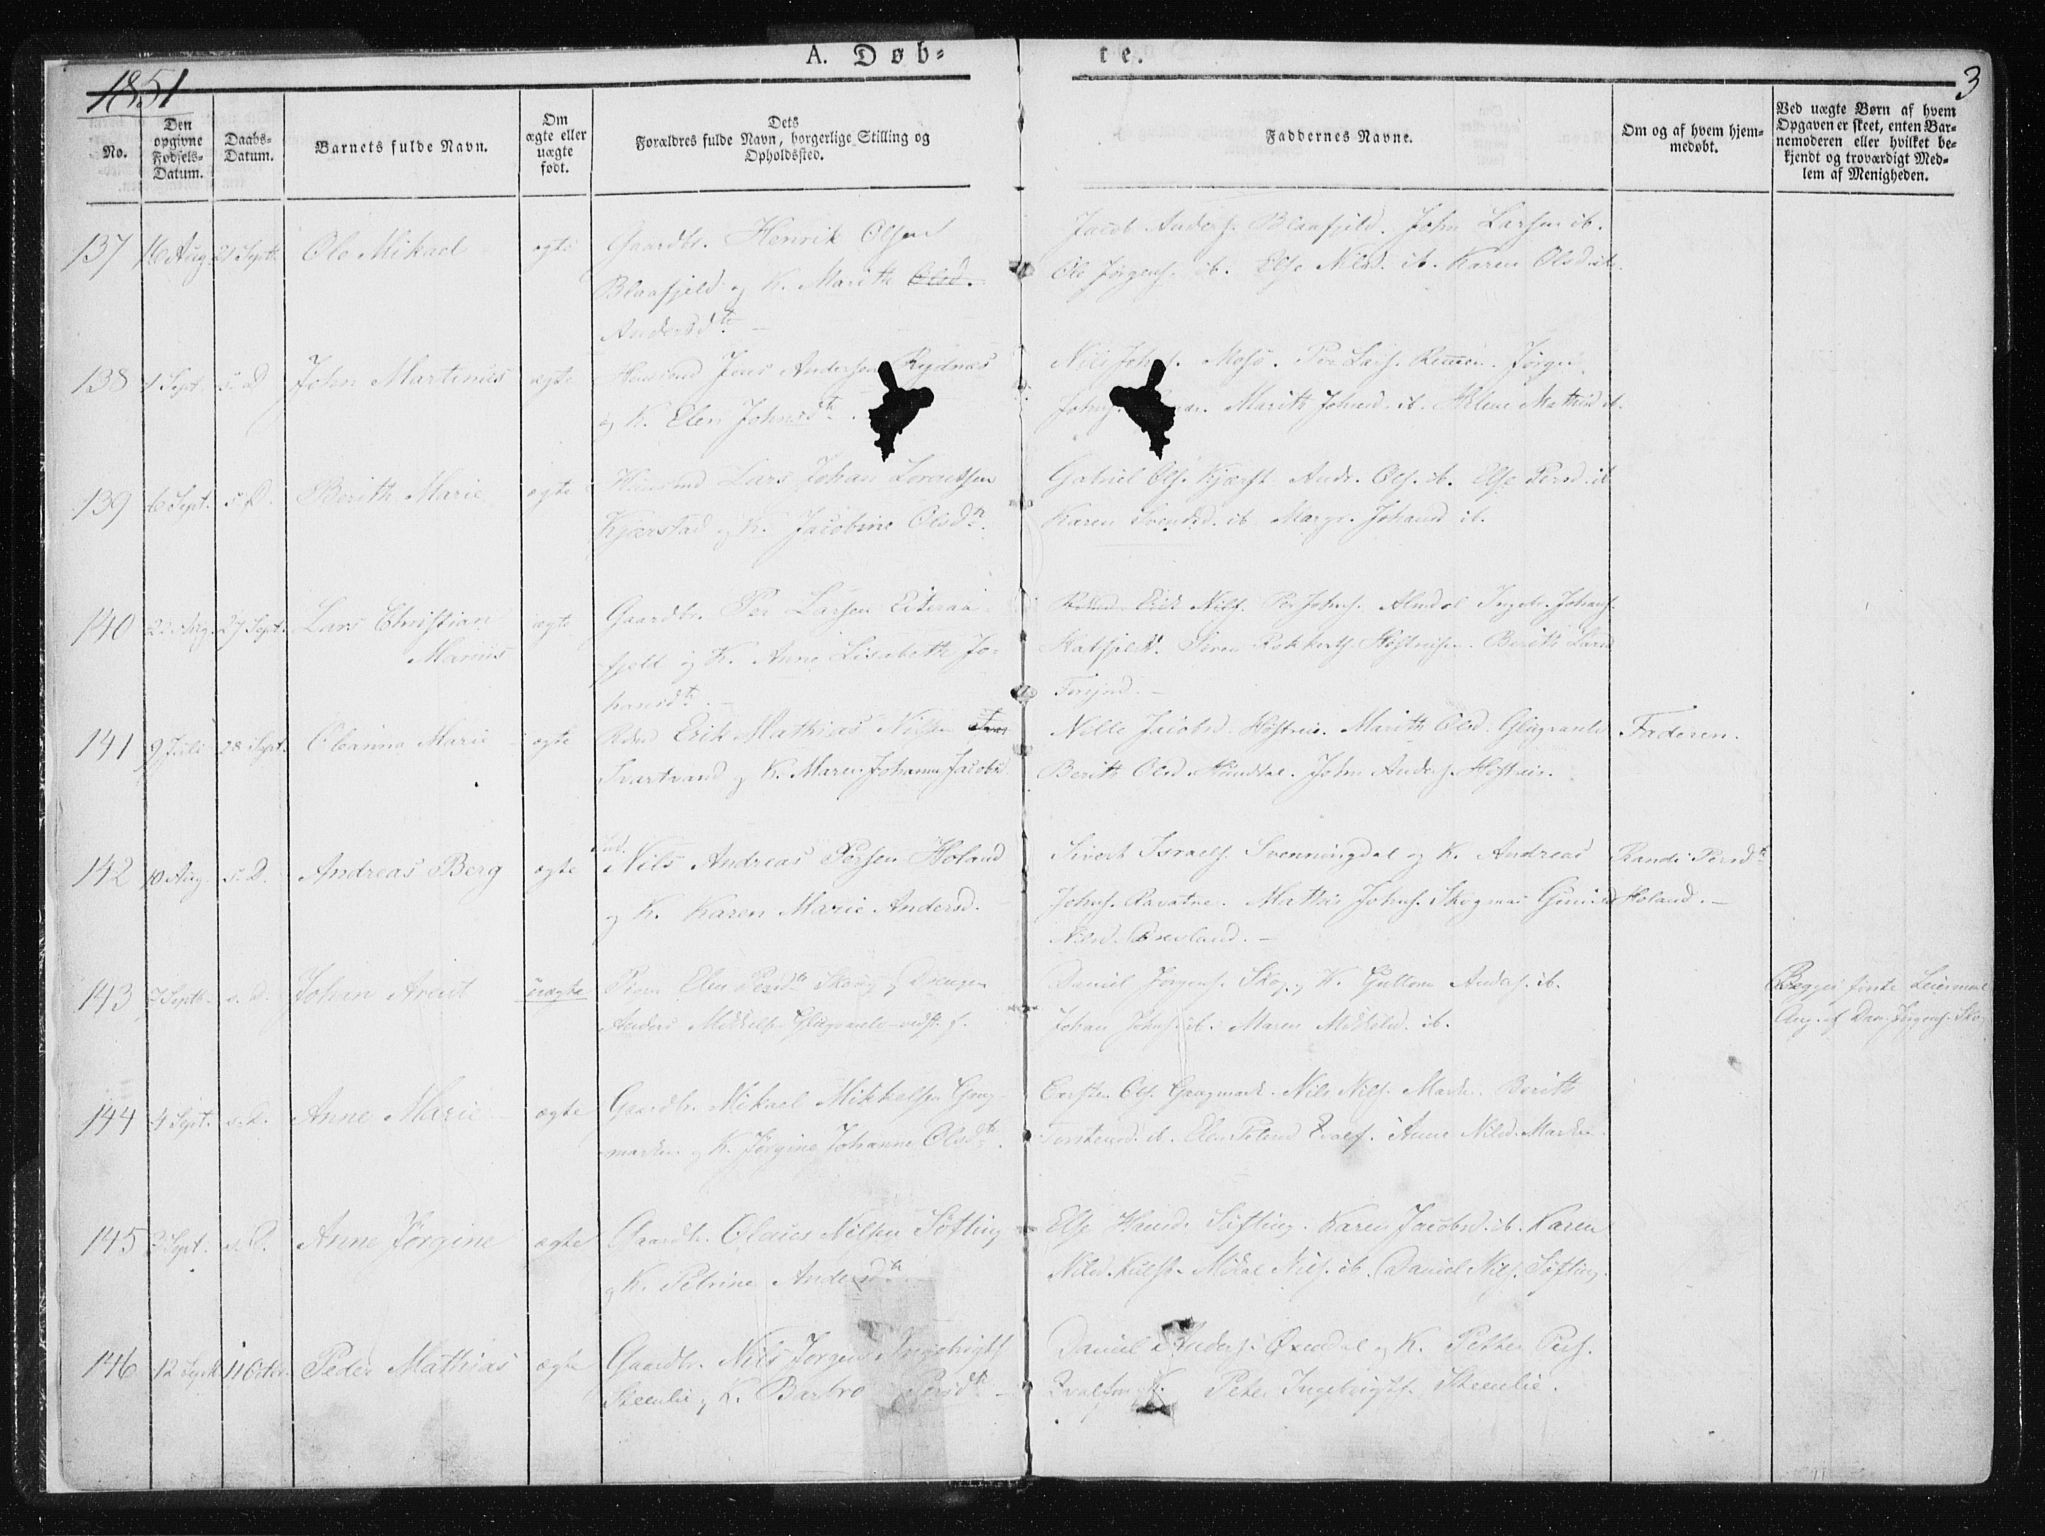 A. Døb= te.
1851
3
No.
Den opgivne Fødsels-Datum.
Daabs-Datum.
Barnets fulde Navn.
Om ægte eller uægte født.
Dets Forældres fulde Navn, borgerlige Stilling og Opholdssted.
Faddernes Navne.
Om og af hvem hjem-medøbt.
Ved uægte Børn af hvem Opgaven er skeet, enten Bar-nemoderen eller hvilket be-kjendt og troværdigt Med-lem af Menigheden.
137 16 Aug. 21 Sept. Ole Mikael ægte Gaardbr. Henrik Olsen
Blaafjeld og K. Marith Olsd.
Andersdtr
Jacob Anders. Blaafjeld. John Larsen ib.
Ole Jørgens. ib. Else Nilsd. ib. Karen Olsd. ib.
138 1 Sept. s. D John Martinus ægte Huusmd Jens Andersen Rydnæs
og K. Elen Johnsdtr.
Nils Johns. Moso. Per Lars. Remen. Jørgen
Johns. Marith Johnsd. ib. Helene Mathisd ib.
139 6 Sept. s. D. Berith Marie ægte Huusmd Lars Johan Lorentsen
Kjærstad og K. Jacobine Olsdtr.
Gabriel Ols. Kjærst. Andr. Ols. ib. Else Persd. ib
Karen Svendsd. ib. Margr. Johansd ib.
140 22 Aug. 27 Sept. Lars Christian
Marius
ægte Gaardbr. Per Larsen Eiteraa
fjeld og K. Anne Lisabeth Jo-
hansdtr.
Erik Nils. Per Johns. Almdal Ingebr. Johans.
Berith Larsd
141 9 Juli 28 Sept. Oleanna Marie ægte Erik Mathias Nilsen
Svartvand og K. Maren Johanna Jacobsd.
Nille Jacobsd. Høstreis. Marith Olsd. Glugvasli
Berith Olsd. Hunddal. John Anders. Høstreis.
Faderen.
142 10 Aug. s. D. Andreas Berg ægte Ind.
Nils Andreas Persen Holand
og K. Karen Marie Andersd.
Sivert Israels. Svenningdal og K. Andreas
Johns. Ravatne. Mathis Johns. Skogmo
Nilsd.
Randi Persdtr
Holand.
143 7 Septb. s. D. Johan Arent uægte Elen Persdtr Skoug og Drengen
Anders Mikkels. Glugvasli
Daniel Jørgens. Skog og K. Gullom Anders. ib.
Johan Johns. ib. Maren Mikkelsd. ib.
Begges første Leiermaal
Ang. af Dan. Jørgens. Skog
144 4 Sept. s. D. Anne Marie ægte Gaardbr. Mikael Mikkelsen Graag-
marken og K. Jørgine Johanne Olsdtr.
Carsten Ols. Graagmark. Nils Nils. Marken. Berith
Torstensd. ib. Elen Petersd Anne Nilsd. Marken
145 3 Sept. s. D. Anne Jørgine ægte Gaardbr. Claus Nilsen Søfting
og K. Petrine Andersdtr
Else Hansd. Søfting. Karen Jacobsd. ib. Karen
Nilsd. Mikal Nils. ib. Daniel Nils. Søfting.
146 12 Sept. 11 Octbr. Peder Mathias ægte Gaardbr. Nils Jørgen Ingebrigts.
Steenlie og K. Barbro Persdtr
Daniel Anders. Øxendal og K. Petter Pers.
Peter Ingebrigts. Steenlie.